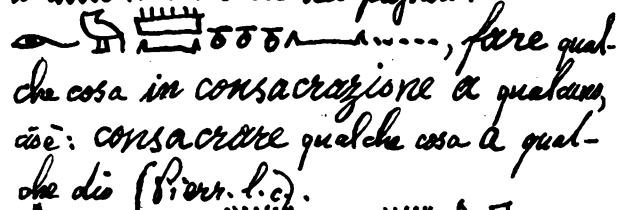 ....., fare qual-
che cosa in consacrazione a qualcuno,
cioè: consacrare qualche cosa a qual-
che dio (Pierr. l.c.).